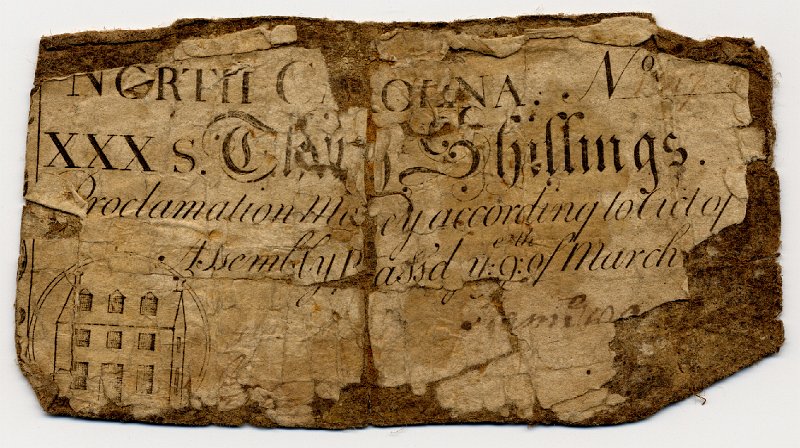 NORTH CAROLINA. No
XXX S. Thirty Shillings.
Proclamation Money according to Act of
Assembly pass'd ye 9th of March